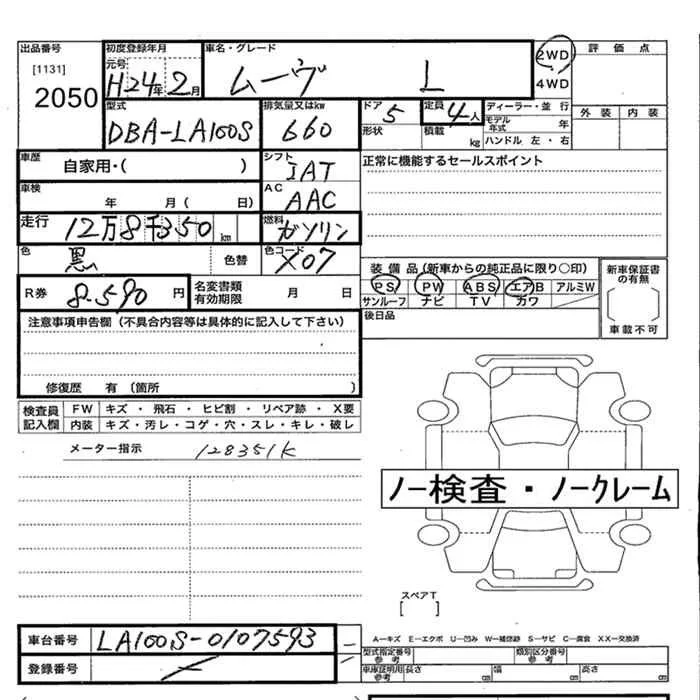 出品番号 初度登録年月 車名・グレード 2WD 評価点
[1131] 元号 H24年 2月 ムーヴ L 4WD
2050 型式 排気量又はkw ドア 5 定員 4人 ディーラー・並行 外装 内装
DBA-LA100S 660 形状 積載 kg モデル年式 年
ハンドル 左・右
車歴 自家用・( ) シフト IAT 正常に機能するセールスポイント
車検 年 月( 日) AC AAC
走行 12万8千350km 燃料 ガソリン
色 黒 色替 色コード X07 装備品(新車からの純正品に限り○印) 新車保証書の有無
R券 8.590円 名変書類有効期限 月 日 PS PW ABS エアB アルミW
サンルーフ ナビ TV カワ
注意事項申告欄(不具合内容等は具体的に記入して下さい) 後日品 車載不可
修復歴 有(箇所 )
検査員記入欄 FW キズ・飛石・ヒビ割・リペア跡・X要
内装 キズ・汚レ・コゲ・穴・スレ・キレ・破レ
メーター指示 128351K
ノー検査・ノークレーム
スペアT
[ ]
車台番号 LA100S-0107593 A−キズ E−エクボ U−凹み W−補修跡 S−サビ C−腐食 XX−交換済
登録番号 型式指定番号 参考 類別区分番号 参考
車庫証明用 参考 長さ cm 幅 cm 高さ cm